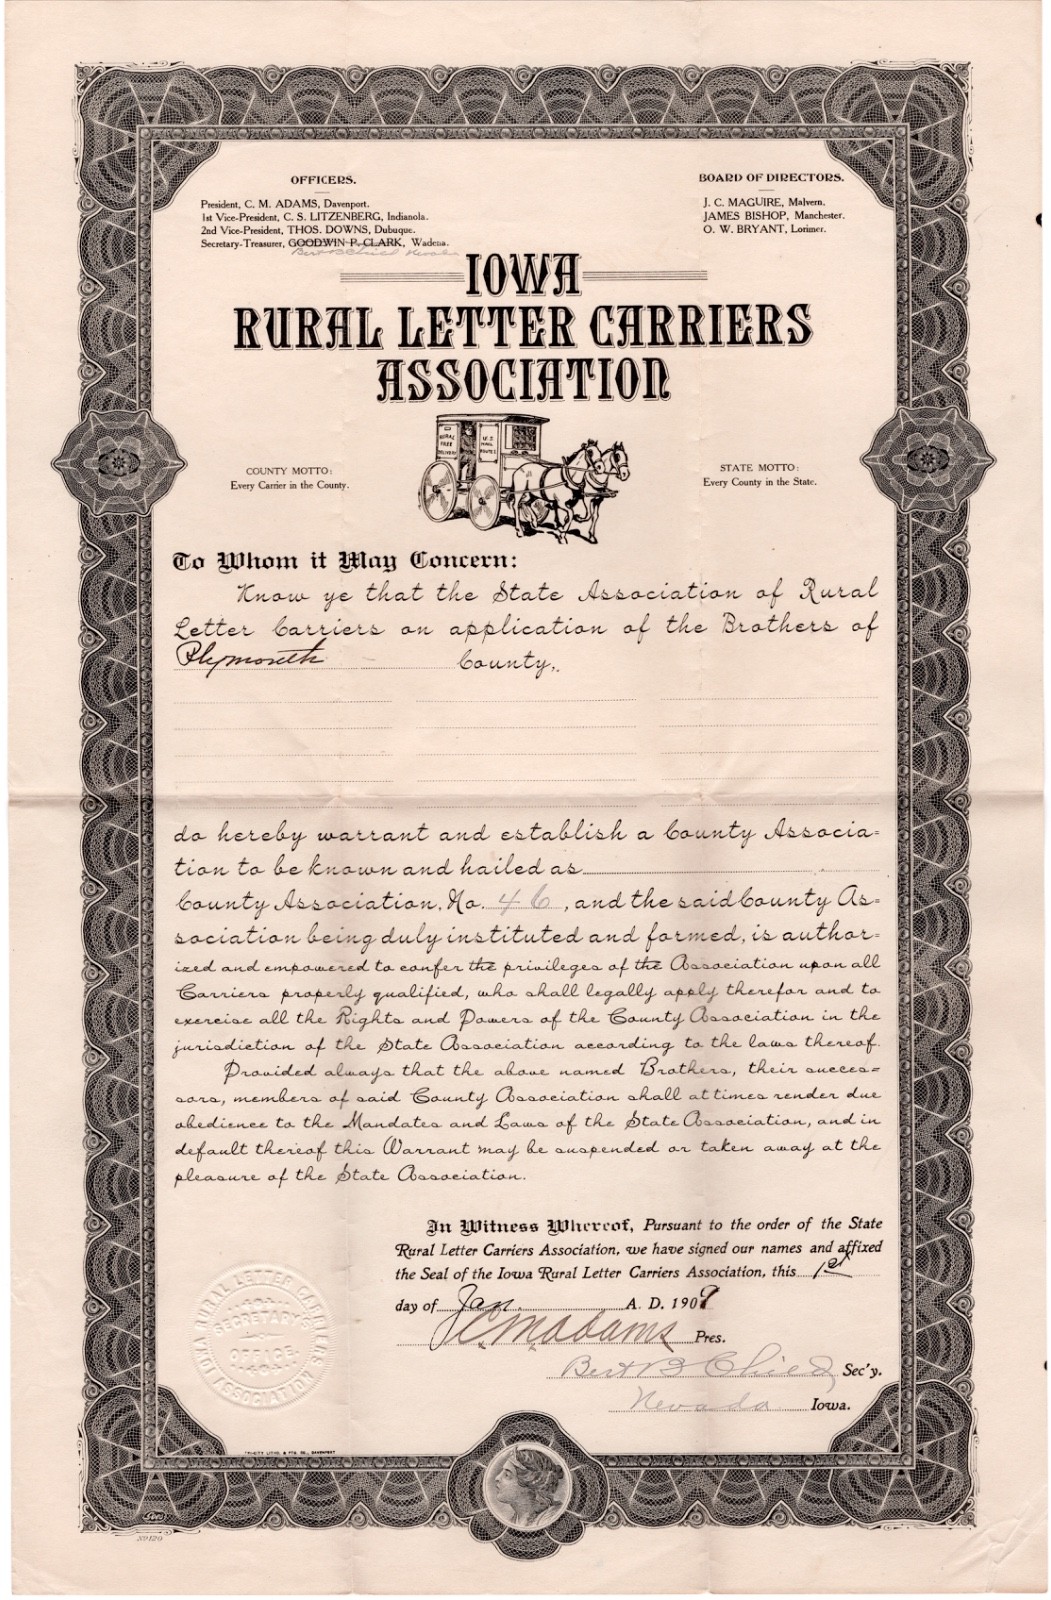 OFFICERS.
President, C. M. ADAMS, Davenport.
1st Vice-President, C. S. LITZENBERG, Indianola.
2nd Vice-President, THOS. DOWNS, Dubuque.
Secretary-Treasurer, GOODWIN P. CLARK, Wadena.
Bert B Child Nevada
BOARD OF DIRECTORS.
J. C. MAGUIRE, Malvern.
JAMES BISHOP, Manchester.
O. W. BRYANT, Lorimer.
IOWA
RURAL LETTER CARRIERS
ASSOCIATION
RURAL
FREE
DELIVERY
U.S.
MAIL
ROUTE 1.
COUNTY MOTTO:
Every Carrier in the County.
STATE MOTTO:
Every County in the State.
To Whom it May Concern:
Know ye that the State Association of Rural
Letter Carriers on application of the Brothers of
Plymouth County,
do hereby warrant and establish a County Associa=
tion to be known and hailed as
County Association, No. 46, and the said County As=
sociation being duly instituted and formed, is author=
ized and empowered to confer the privileges of the Association upon all
Carriers properly qualified, who shall legally apply therefor and to
exercise all the Rights and Powers of the County Association in the
jurisdiction of the State Association according to the laws thereof.
Provided always that the above named Brothers, their succes=
sors, members of said County Association shall at times render due
obedience to the Mandates and Laws of the State Association, and in
default thereof this Warrant may be suspended or taken away at the
pleasure of the State Association.
In Witness Whereof, Pursuant to the order of the State
Rural Letter Carriers Association, we have signed our names and affixed
the Seal of the Iowa Rural Letter Carriers Association, this 1st
day of Jan. A. D. 1909
C M Adams Pres.
Bert B Child Sec'y.
Nevada Iowa.
IOWA RURAL LETTER CARRIERS ASSOCIATION
SECRETARY'S
OFFICE.
TRI-CITY LITHO. & PTG. CO., DAVENPORT
Goes
No 120